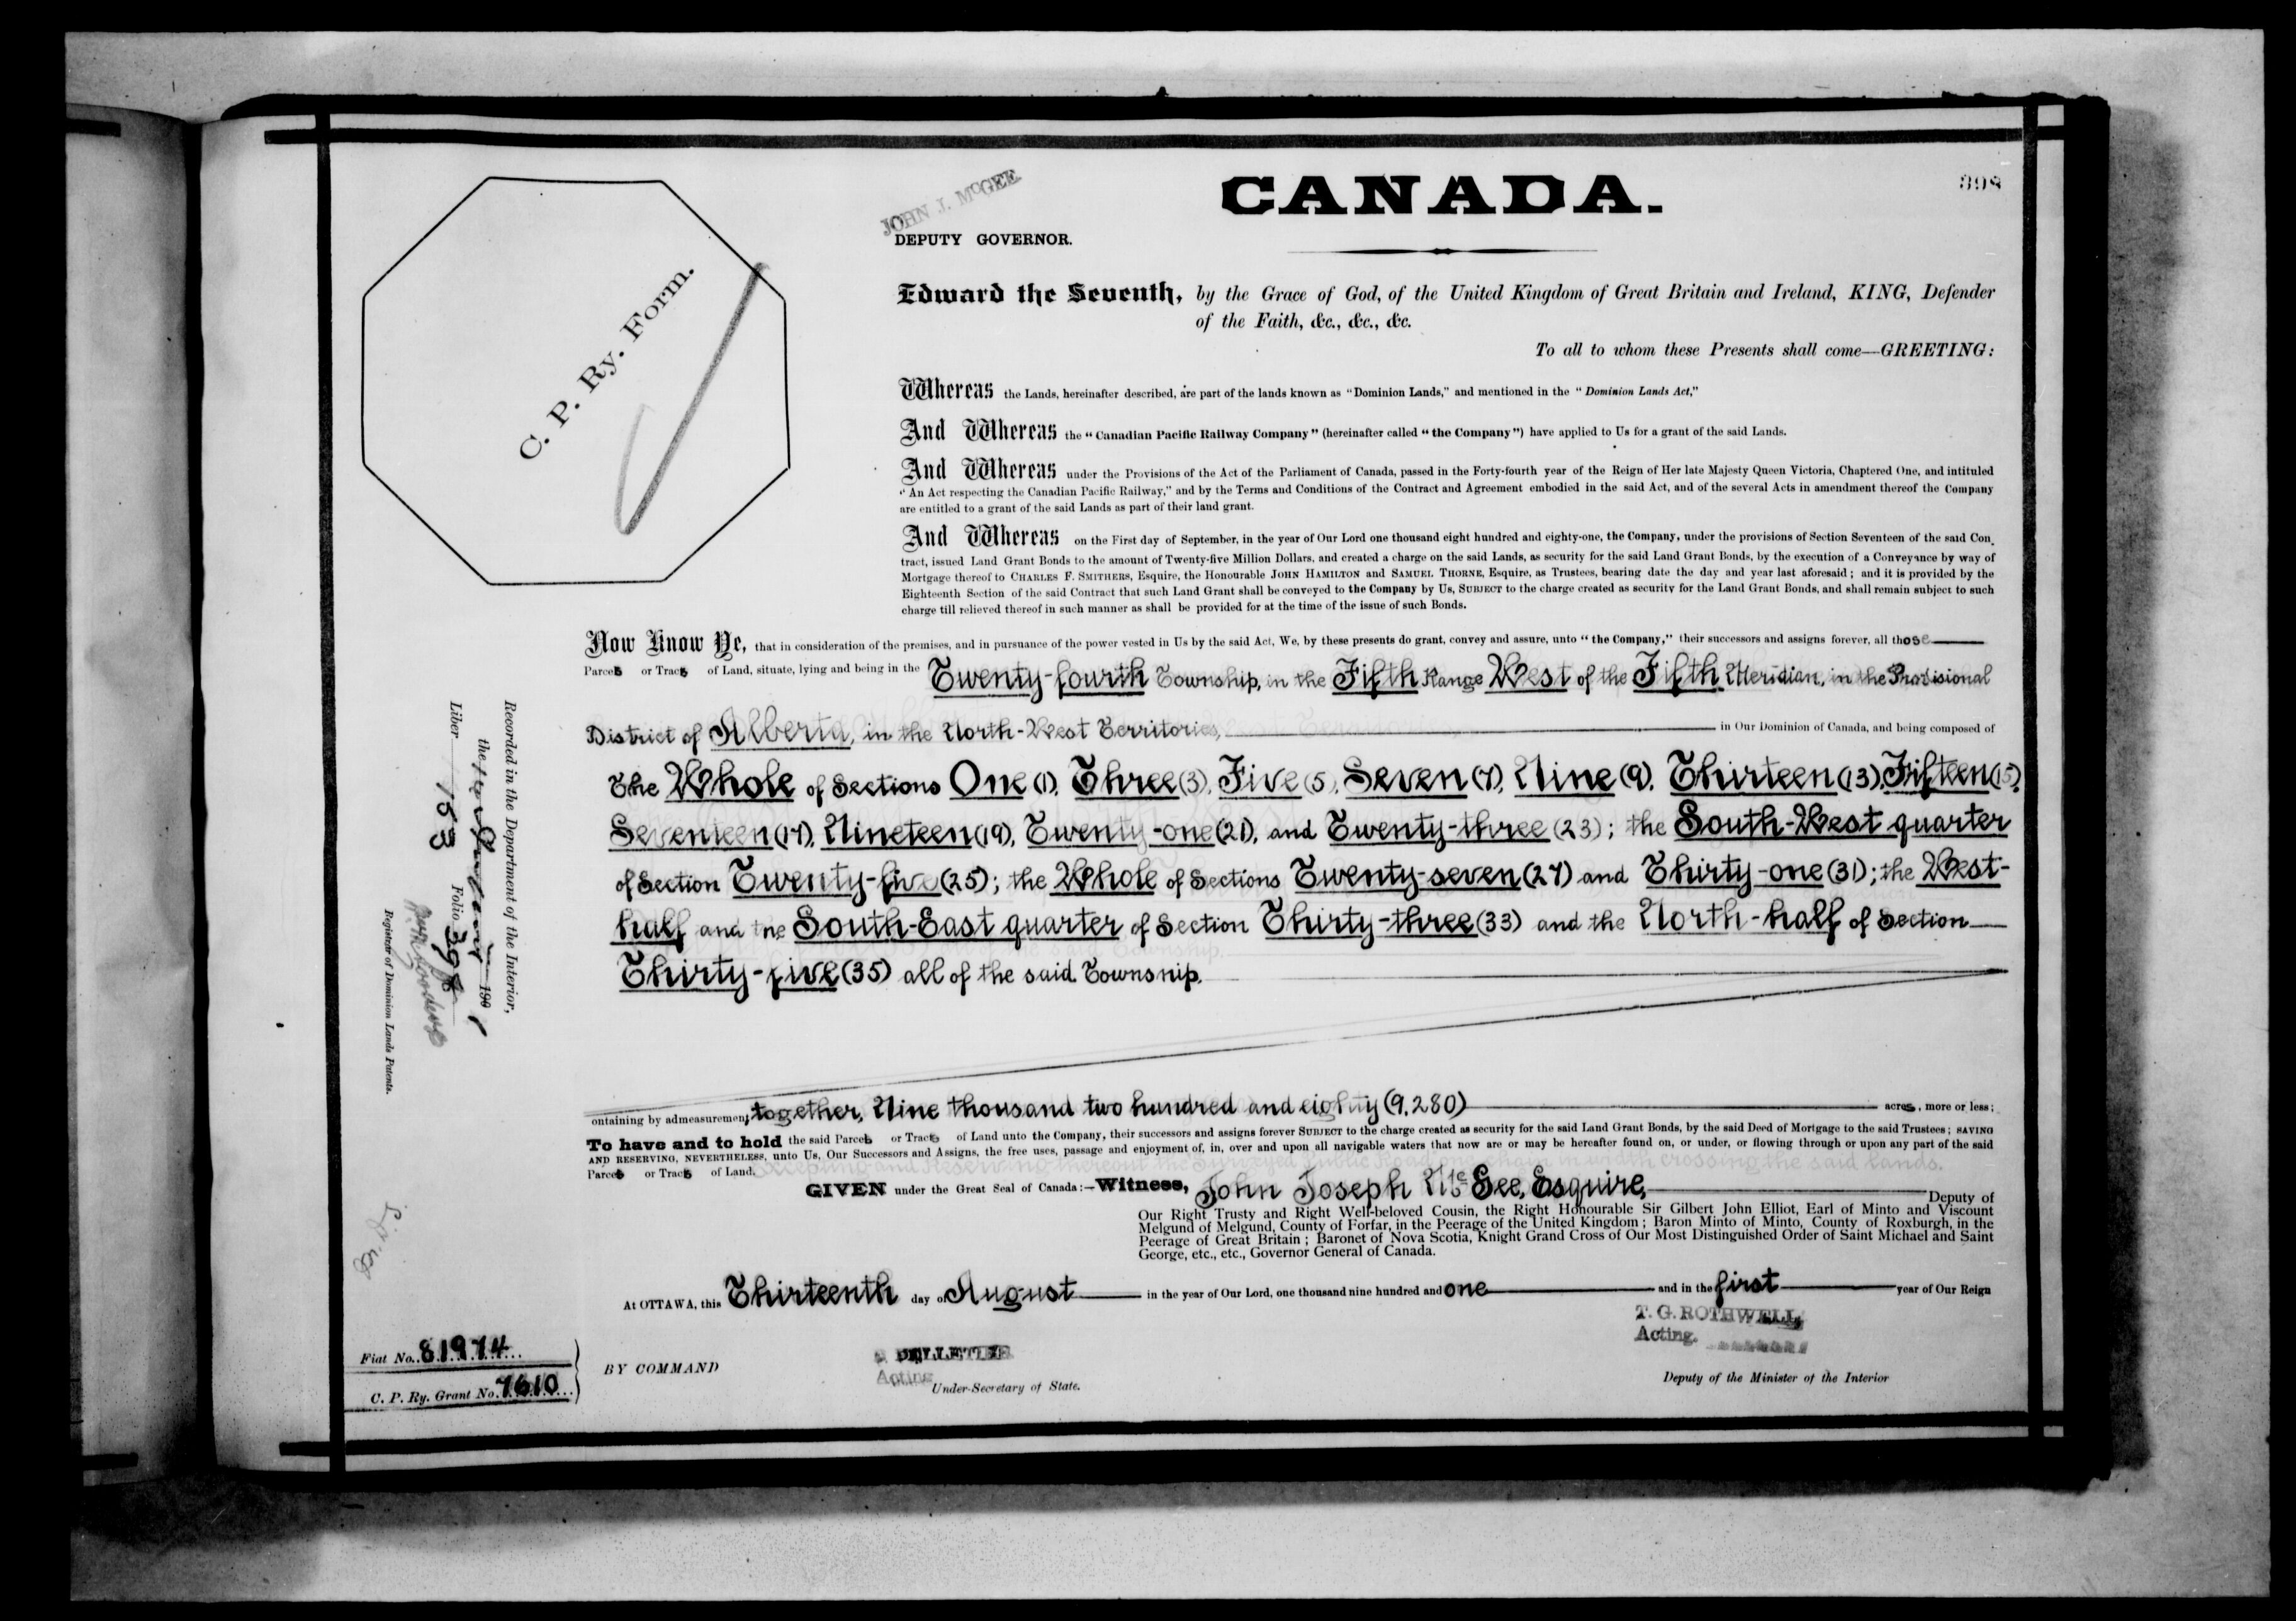 CANADA.
398
JOHN J. McGEE
DEPUTY GOVERNOR.
C. P. Ry. Form.
Edward the Seventh, by the Grace of God, of the United Kingdom of Great Britain and Ireland, KING, Defender
of the Faith, &c., &c., &c.
To all to whom these Presents shall come—GREETING:
Whereas the Lands, hereinafter described, are part of the lands known as "Dominion Lands," and mentioned in the "Dominion Lands Act,"
And Whereas the "Canadian Pacific Railway Company" (hereinafter called "the Company") have applied to Us for a grant of the said Lands.
And Whereas under the Provisions of the Act of the Parliament of Canada, passed in the Forty-fourth year of the Reign of Her late Majesty Queen Victoria, Chaptered One, and intituled
"An Act respecting the Canadian Pacific Railway," and by the Terms and Conditions of the Contract and Agreement embodied in the said Act, and of the several Acts in amendment thereof the Company
are entitled to a grant of the said Lands as part of their land grant.
And Whereas on the First day of September, in the year of Our Lord one thousand eight hundred and eighty-one, the Company, under the provisions of Section Seventeen of the said Con
tract, issued Land Grant Bonds to the amount of Twenty-five Million Dollars, and created a charge on the said Lands, as security for the said Land Grant Bonds, by the execution of a Conveyance by way of
Mortgage thereof to CHARLES F. SMITHERS, Esquire, the Honourable JOHN HAMILTON and SAMUEL THORNE, Esquire, as Trustees, bearing date the day and year last aforesaid; and it is provided by the
Eighteenth Section of the said Contract that such Land Grant shall be conveyed to the Company by Us, SUBJECT to the charge created as security for the Land Grant Bonds, and shall remain subject to such
charge till relieved thereof in such manner as shall be provided for at the time of the issue of such Bonds.
Now Know Ye, that in consideration of the premises, and in pursuance of the power vested in Us by the said Act, We, by these presents do grant, convey and assure, unto "the Company," their successors and assigns forever, all those
Parcels or Tracts of Land, situate, lying and being in the Twenty-fourth Township, in the Fifth Range West of the Fifth Meridian, in the Provisional
District of Alberta, in the North-West Territories, in Our Dominion of Canada, and being composed of
The Whole of Sections One (1), Three (3), Five (5), Seven (7), Nine (9), Thirteen (13), Fifteen (15),
Seventeen (17), Nineteen (19), Twenty-one (21), and Twenty-three (23); the South-West quarter
of Section Twenty-five (25); the Whole of Sections Twenty-seven (27) and Thirty-one (31); the West-
half and the South-East quarter of Section Thirty-three (33) and the North-half of Section
Thirty-five (35) all of the said Township.
ontaining by admeasurement together, Nine thousand two hundred and eighty (9,280) acres, more or less;
To have and to hold the said Parcels or Tracts of Land unto the Company, their successors and assigns forever SUBJECT to the charge created as security for the said Land Grant Bonds, by the said Deed of Mortgage to the said Trustees; SAVING
AND RESERVING, NEVERTHELESS, unto Us, Our Successors and Assigns, the free uses, passage and enjoyment of, in, over and upon all navigable waters that now are or may be hereafter found on, or under, or flowing through or upon any part of the said
Parcels or Tracts of Land.
GIVEN under the Great Seal of Canada:—Witness, John Joseph McGee, Esquire, Deputy of
Our Right Trusty and Right Well-beloved Cousin, the Right Honourable Sir Gilbert John Elliot, Earl of Minto and Viscount
Melgund of Melgund, County of Forfar, in the Peerage of the United Kingdom; Baron Minto of Minto, County of Roxburgh, in the
Peerage of Great Britain; Baronet of Nova Scotia, Knight Grand Cross of Our Most Distinguished Order of Saint Michael and Saint
George, etc., etc., Governor General of Canada.
At OTTAWA, this Thirteenth day of August in the year of Our Lord, one thousand nine hundred and one and in the first year of Our Reign
T. G. ROTHWELL
Acting
Deputy of the Minister of the Interior
BY COMMAND
PELLETIER
Acting
Under-Secretary of State.
Fiat No. 81974
C. P. Ry. Grant No. 7610
Recorded in the Department of the Interior,
the 190 1
Liber 153 Folio 398
Registrar of Dominion Lands Patents.